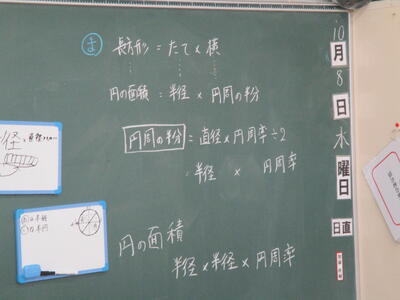 ま 長方形 = たて × 横
円の面積 = 半径 × 円周の半分
円周の半分 = 直径 × 円周率 ÷ 2
= 半径 × 円周率
円の面積
半径 × 半径 × 円周率
10
月
8
日
水
曜日
日直